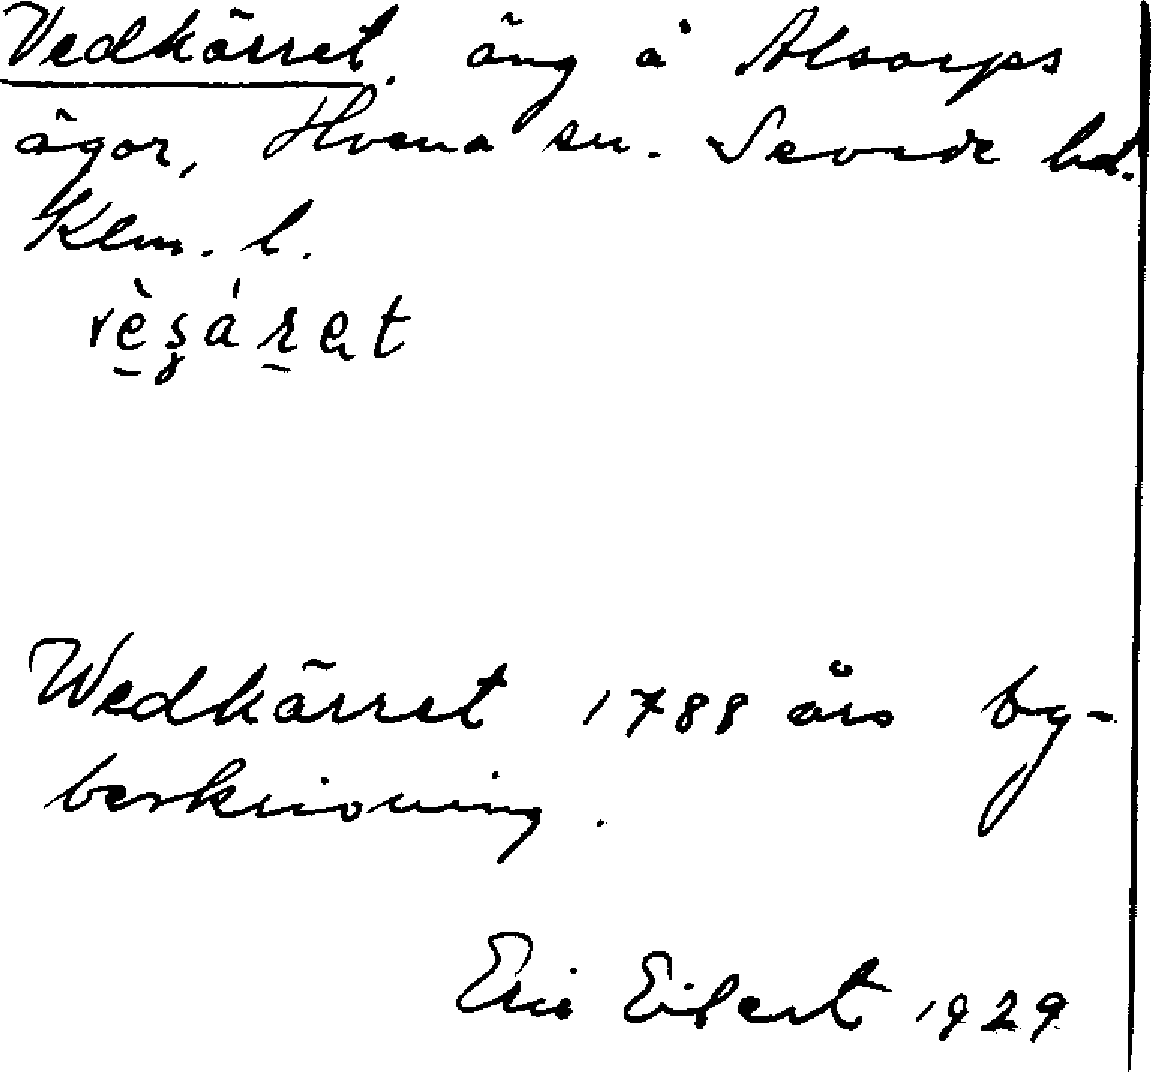 Vedkärret, äng å Alsarps
ägor, Hvena sn. Sevede hd.
Klm. l.
vèʂáret
Wedkärret 1788 års by-
beskrivning.
Eric Eilert 1929